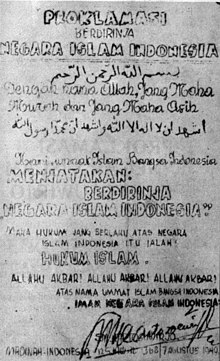 PROKLAMASI
BERDIRINJA
NEGARA ISLAM INDONESIA
بسم الله الرحمن الرحيم
Dengah nama Allah, Jang Maha
Murah dan Jang Maha Asih
اشهد ان لا اله الا الله واشهد ان محمدا رسول الله
Kami, Ummat Islam Bangsa Indonesia
MENJATAKAN:
BERDIRINJA
„NEGARA ISLAM INDONESIA”
MAKA HUKUM JANG BERLAKU ATAS NEGARA
ISLAM INDONESIA ITU IALAH:
HUKUM ISLAM.
ALLAHU AKBAR! ALLAHU AKBAR! ALLAHU AKBAR!
ATAS NAMA UMMAT ISLAM BANGSA INDONESIA
IMAM NEGARA ISLAM INDONESIA
MADINAH-INDONESIA, 12 1368/7 AGUSTUS 1949